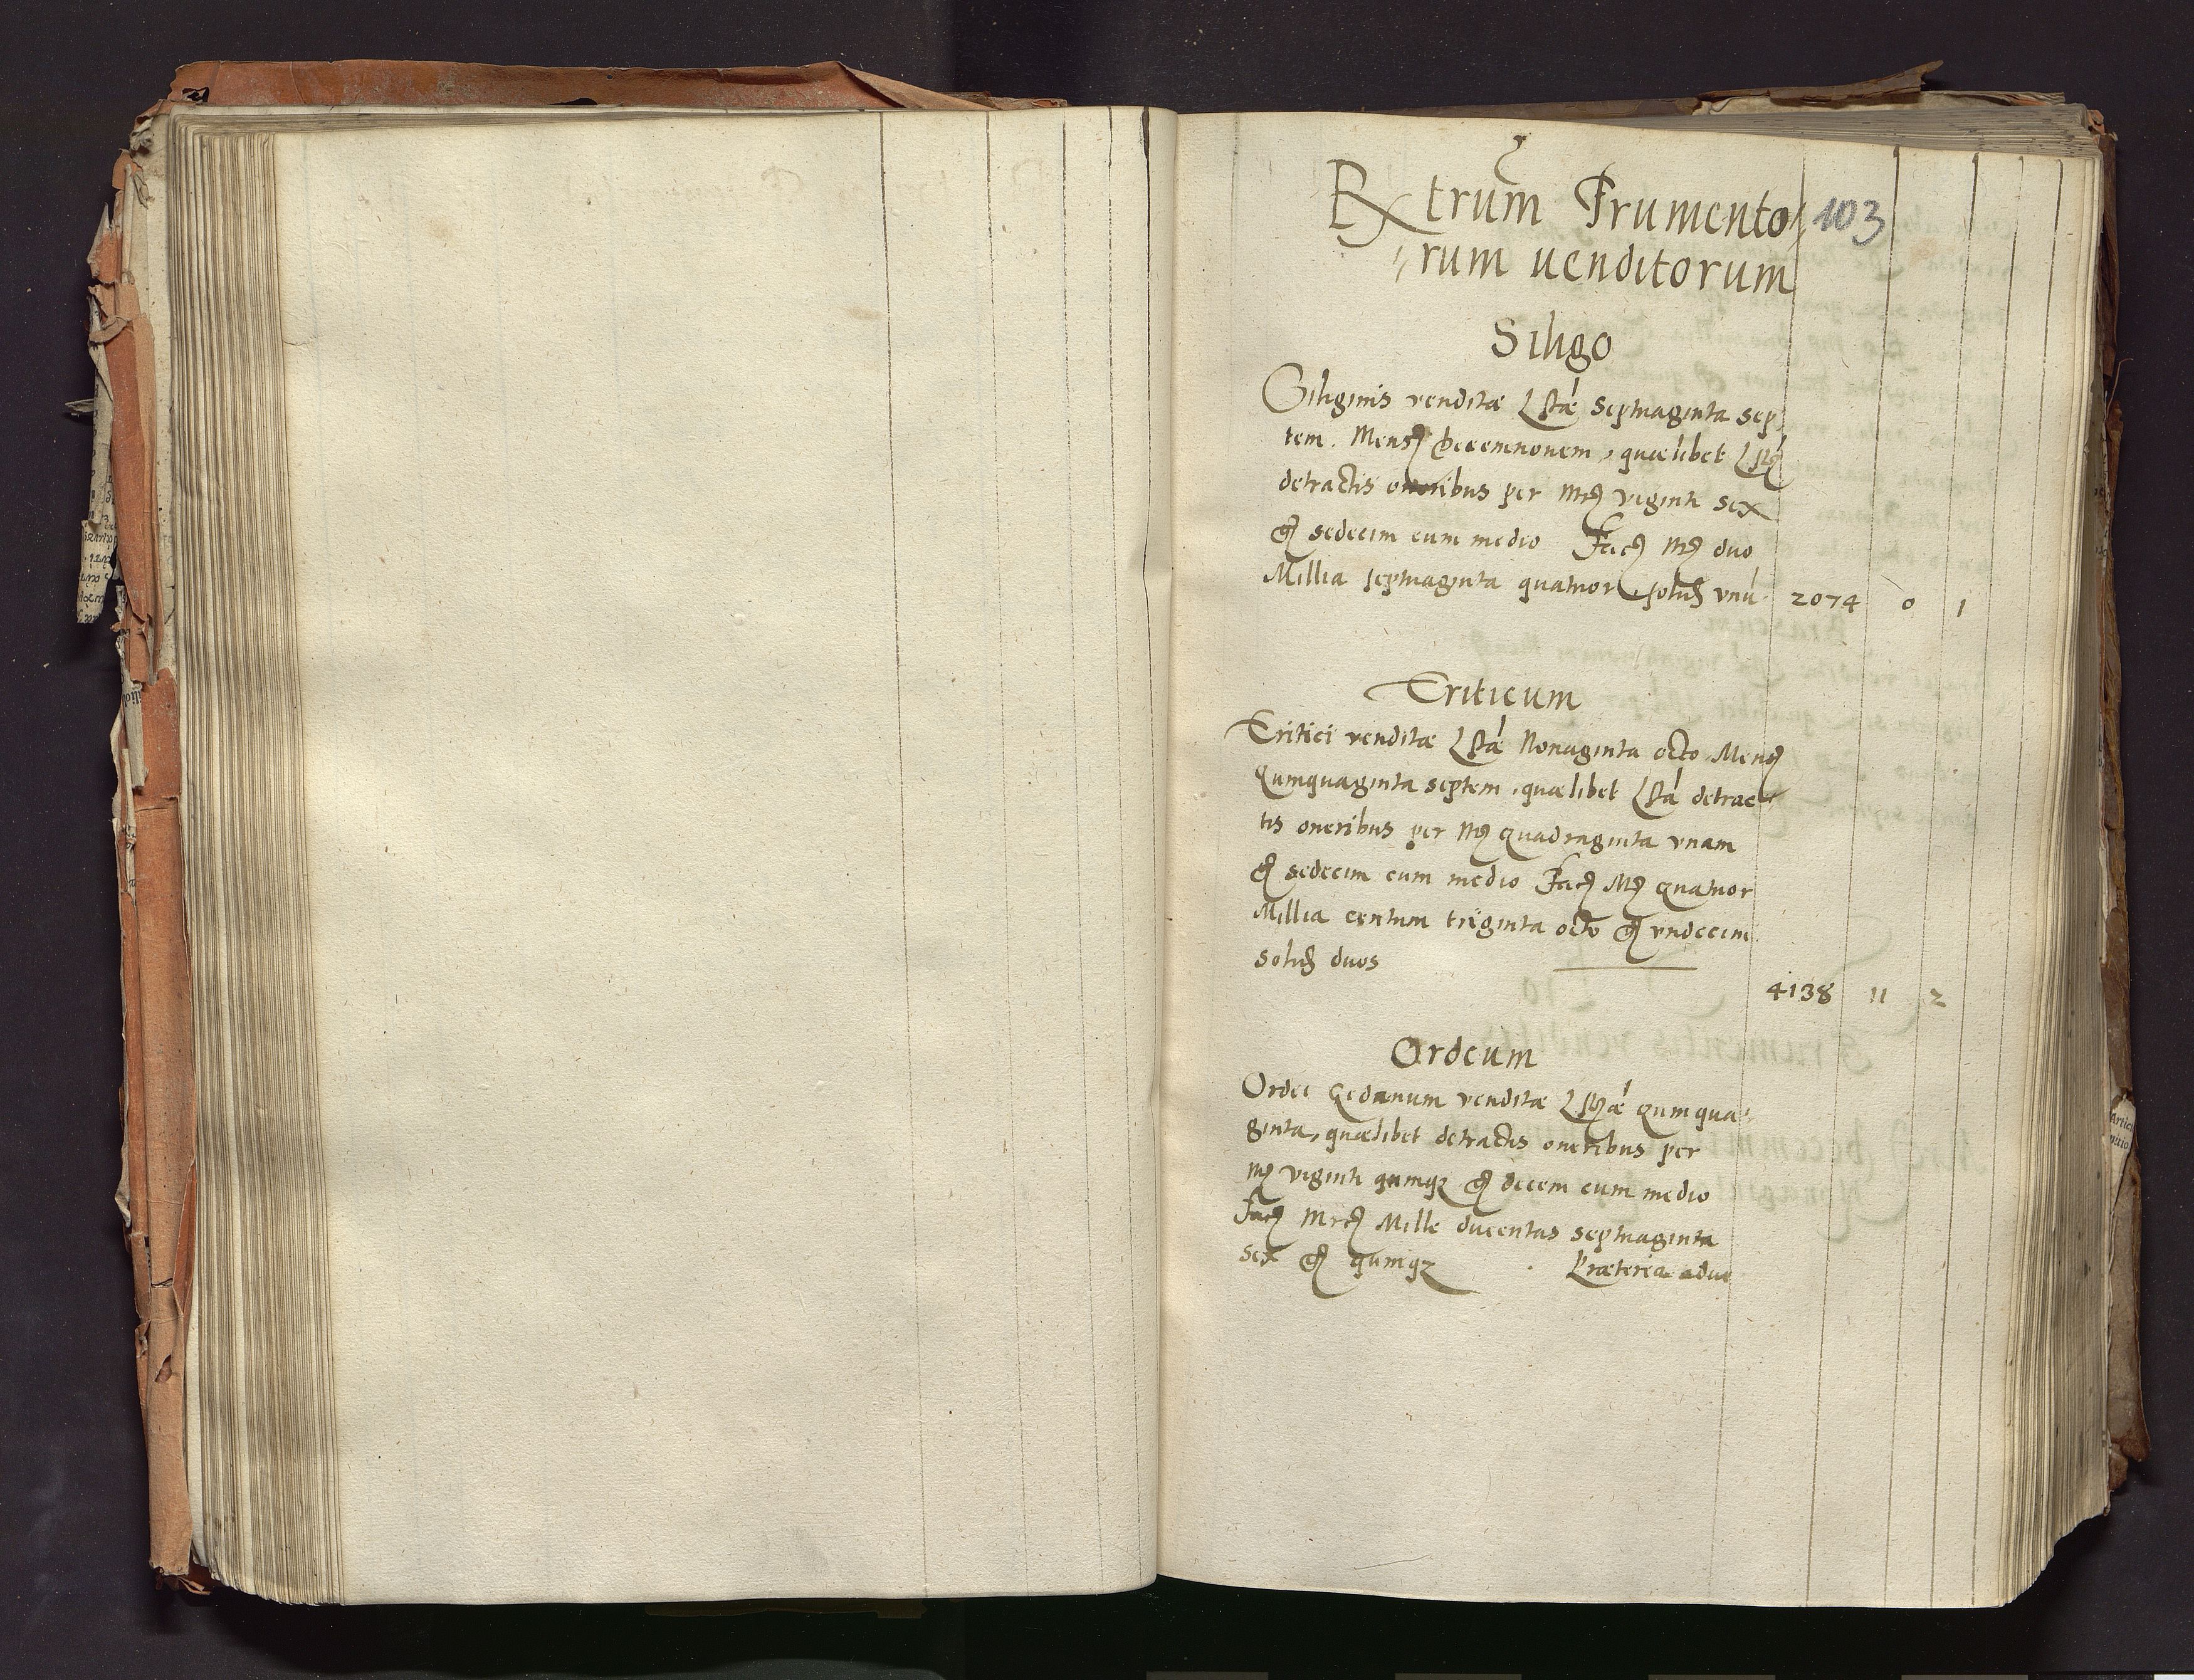 Extrum Frumento 103
rum uenditorum
Siligo
Siliginis venditæ Lstæ Septuaginta sep
tem. Mens Decemnouem, quælibet Lst
detractis oneribus per Mrc viginti sex
g sedecim cum medio Fac Mr duo
Millia septuaginta quatuor solid vnu 2074 0 1
Triticum
Tritici venditæ Lstæ Nonaginta octo Mens
Qumquaginta septem, quælibet Lsta detrac
tis oneribus per Mr quadraginta vnam
g sedecim cum medio Fac Mr quatuor
Millia centum triginta octo g vndecim
solid duos
4138 11 2
Ordeum
Ordei Gedanum venditæ Lstæ qumqua
ginta, quælibet detractis oneribus per
Mr viginti qumq g decem cum medio
Fac Mrc Mille ducentas septuaginta
sex g qumq Præterea adue